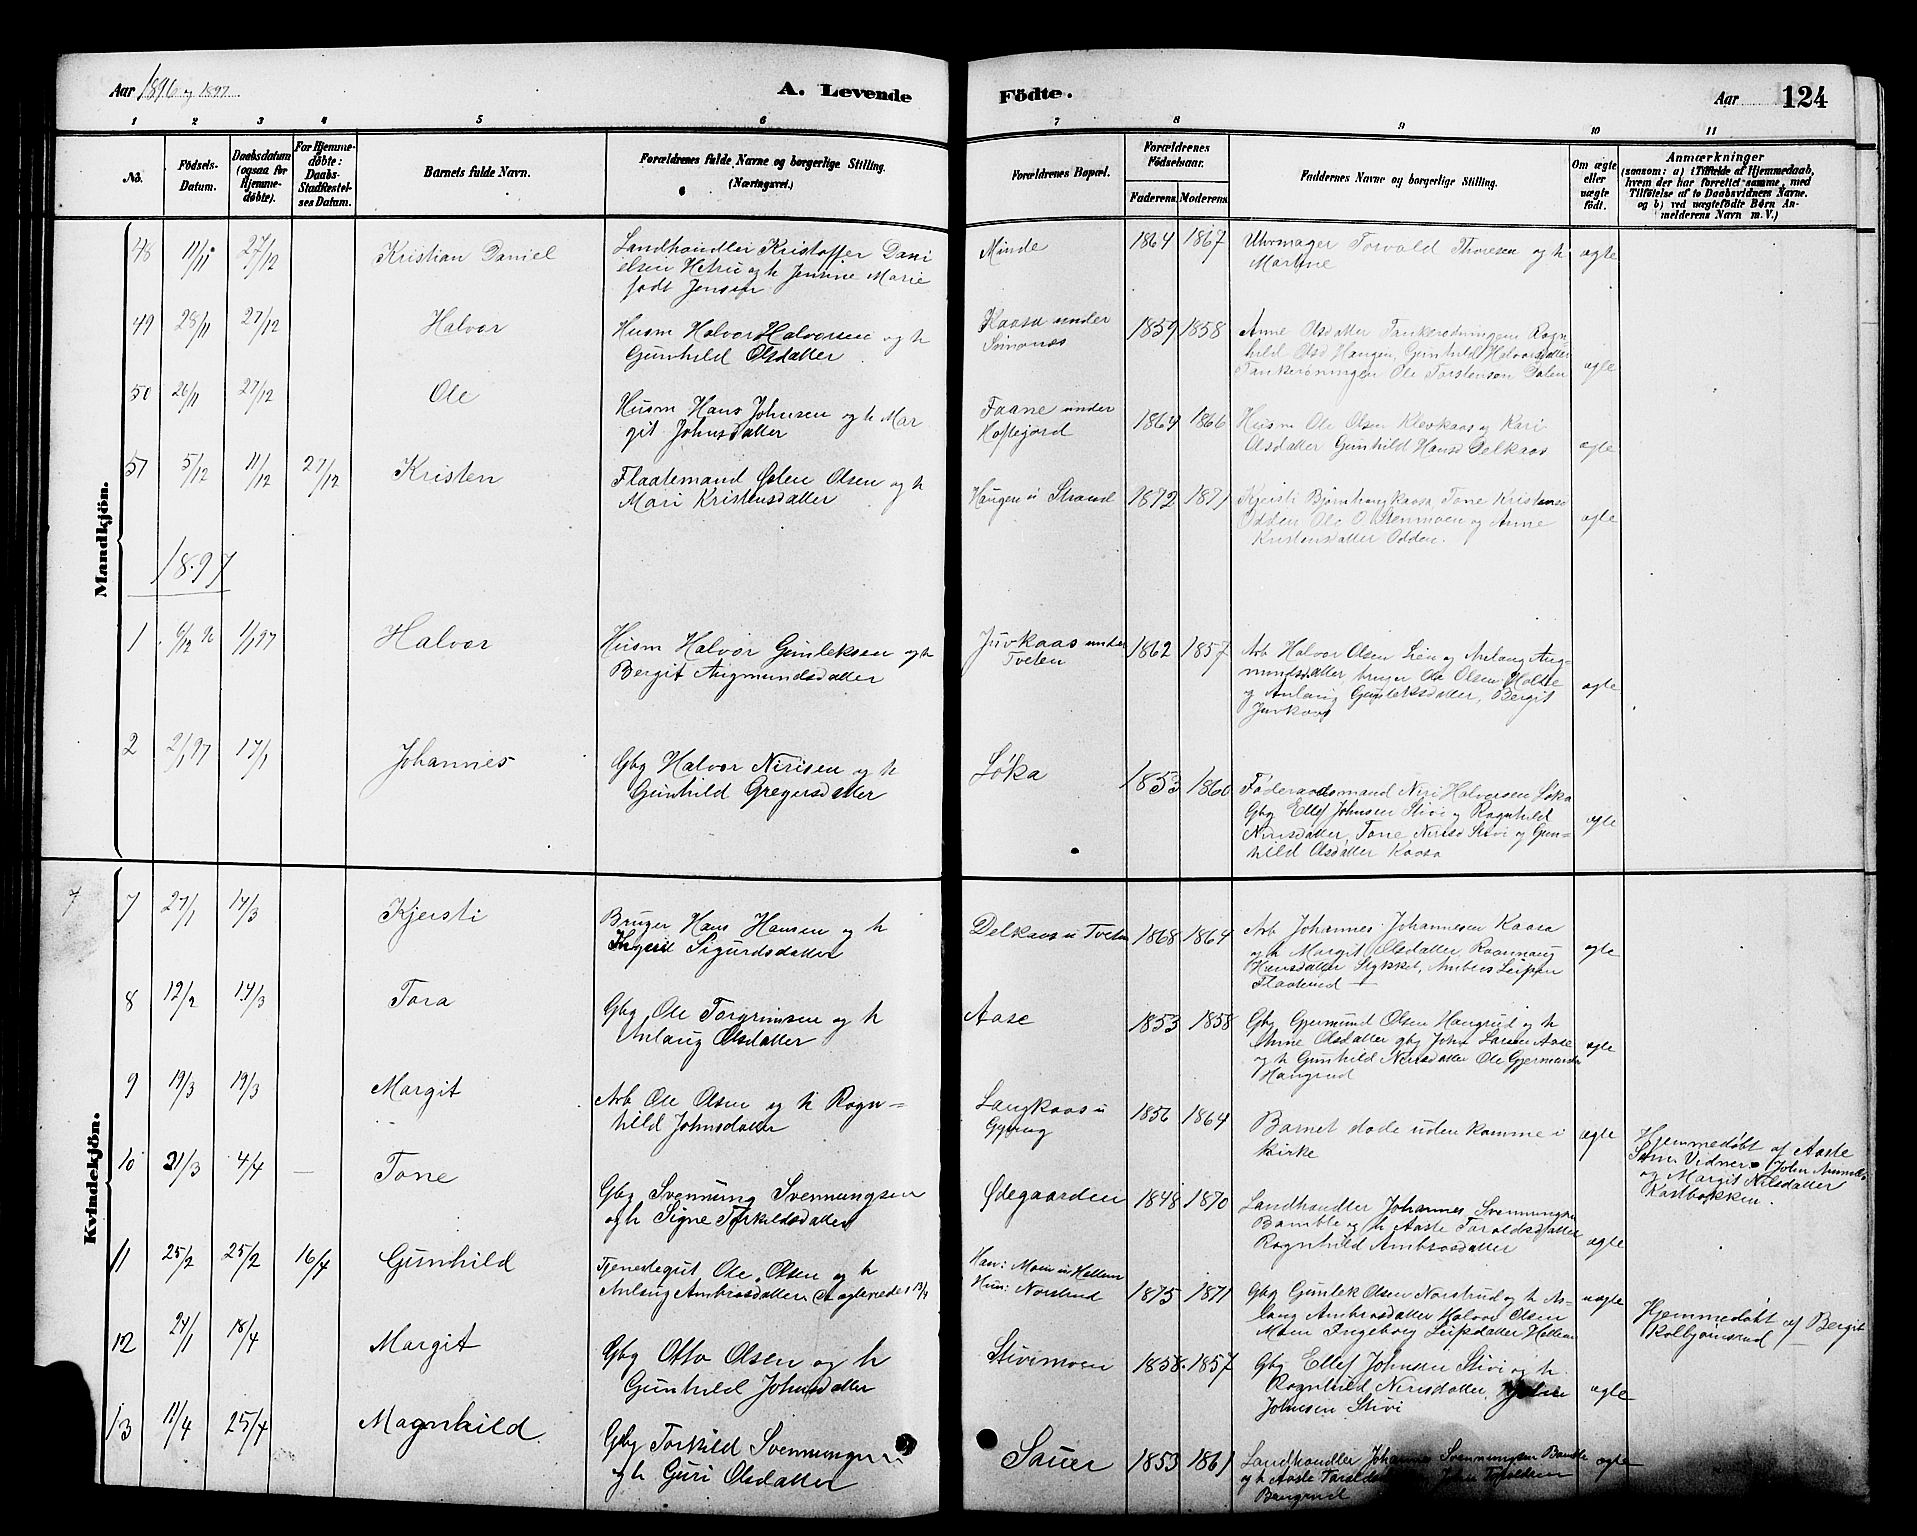 Aar 1896 og 1897
A. Levende
Födte.
Aar
124
1 2 3 4 5 6 7 8 9 10 11
No.
Fødsels-
Datum.
Daabsdatum
(ogsaa for
Hjemme-
døbte).
For Hjemme-
døbte:
Daabs-
Stadfæstel-
ses Datum.
Barnets fulde Navn.
Forældrenes fulde Navne og borgerlige Stilling.
(Næringsvei.)
Forældrenes Bopæl.
Forældrenes
Fødselsaar.
Faderens. Moderens.
Faddernes Navne og borgerlige Stilling.
Om ægte
eller
uægte
født.
Anmærkninger
(saasom: a) i Tilfælde af Hjemmedaab,
hvem der har forrettet samme, med
Tilføielse af to Daabsvidners Navne.
og b) ved uægtefødte Børn An-
melderens Navn m. V.)
Mandkjön.
48 11/11 27/12 Kristian Daniel
Landhandler Kristoffer Dani
elsen Hetru og h Jensine Marie
født Jensen
Minde
1864 1867
Uhrmager Torvald Thoresen og h
Martine
ægte
49 28/11 27/12 Halvor
Husm Halvor Halvorsen og h
Gunhild Olsdatter
Kaasa under
1859 1858
Anne Olsdatter Tankerødningen Rogn
hild Olsd Haugen, Gunhild Halvorsdatter
Tankerøningen Ole Torstenson Dalen
ægte
50 26/11 27/12 Ole
Husm Hans Johnsen og h Mar
git Johnsdatter
Faane under
Heftejord
1864 1866
Husm Ole Olsen Klevkaas og Kari
Olsdatter Gunhild Hansd Delkaas
ægte
51 5/12 11/12 27/12 Kristen
Flaatemand Østen Olsen og h
Mari Kristensdatter
Haugen u Strand
1872 1871
Kjersti Bjørnhaugkaasa, Tone Kristensd
Odden Ole O Stenmoen og Anne
Kristensdatter Odden.
ægte
1897
1 6/12 96 1/1 97 Halvor
Husm Halvor Gunleksen og h
Bergit Augmundsdatter
Juvkaas under
Tveten
1862 1857
Arb Halvor Olsen Lien og Anlaug Aug-
mundsdatter bruger Ole Olsen Holte
og Anlaug Gunleksdatter, Bergit
Juvkaas
ægte
2 2/1 97 17/1 Johannes
Gbg Halvor Nirisen og h
Gunhild Gregersdatter
Løka
1853 1860
Føderaadsmand Niri Halvorsen Løka
Gbg Ellef Johnsen Stivi og Rognhild
Nirisdatter, Tone Nirisd Stivi og Gun-
hild Olsdatter Kaasa
ægte
Kvindekjön.
7 7 27/1 14/3 Kjersti
Bruger Hans Hansen og h
Sigurdsdatter
Delkaas u Tveten
1868 1864
Arb Johannes Johannesen Kaasa
og h Margit Olsdatter Raannaug
Hansdatter Stykket, Leifsen
Flaaterud
ægte
8 12/2 14/3 Tora
Gbg Ole Torgrimsen og h
Anlaug Olsdatter
Aase
1853 1858
Gbg Gjermund Olsen Haugrud og h
Anne Olsdatter gbg John Larsen Aase
og h Gunhild Nirisdatter Ole Gjermunds
Haugrud
ægte
9 19/3 19/3 Margit
Arb Ole Olsen og h Rogn=
hild Johnsdatter
Langkaas u
1856 1864
Barnet døde uden komme i
kirke
ægte
Hjemmedøbt af Aaste
Sem. Vidner John
og Margit Nilsdatter
Kastbakken.
10 21/3 4/4 — Tone
Gbg Svennung Svennungsen
og h Signe Torkildsdatter
Ødegaarden
1848 1870
Landhandler Johannes Svennungsen
Bamble og h Aaste Taraldsdatter
Rognhild Ambrosdatter
ægte
11 25/2 25/2 16/4 Gunhild
Tjenestegut Ole Olsen og h
Anlaug Ambrosdatter.
Han: Moen u Hellem
Hun: Norstrud
1875 1871
Gbg Gunlek Olsen Norstrud og h As-
laug Ambrosdatter Halvor Olsen
Moen Ingeborg Leifsdatter Hellem
uægte
Hjemmedøbt af Bergit
Kolbjørnsrud
12 24/1 18/4 Margit
Gbg Otto Olsen og h
Gunhild Johnsdatter
Stivimoen
1858. 1857
Gbg Ellef Johnsen Stivi og h
Rognhild Nirisdatter,
Johnsen Stivi
ægte
13 11/4 25/4 Magnhild
Gbg Torkild Svennungsen
og h Guri Olsdatter
Sauer
1853 1861
Landhandler Johannes Svennungsen Bamble
og h Aaste Taraldsd
ægte